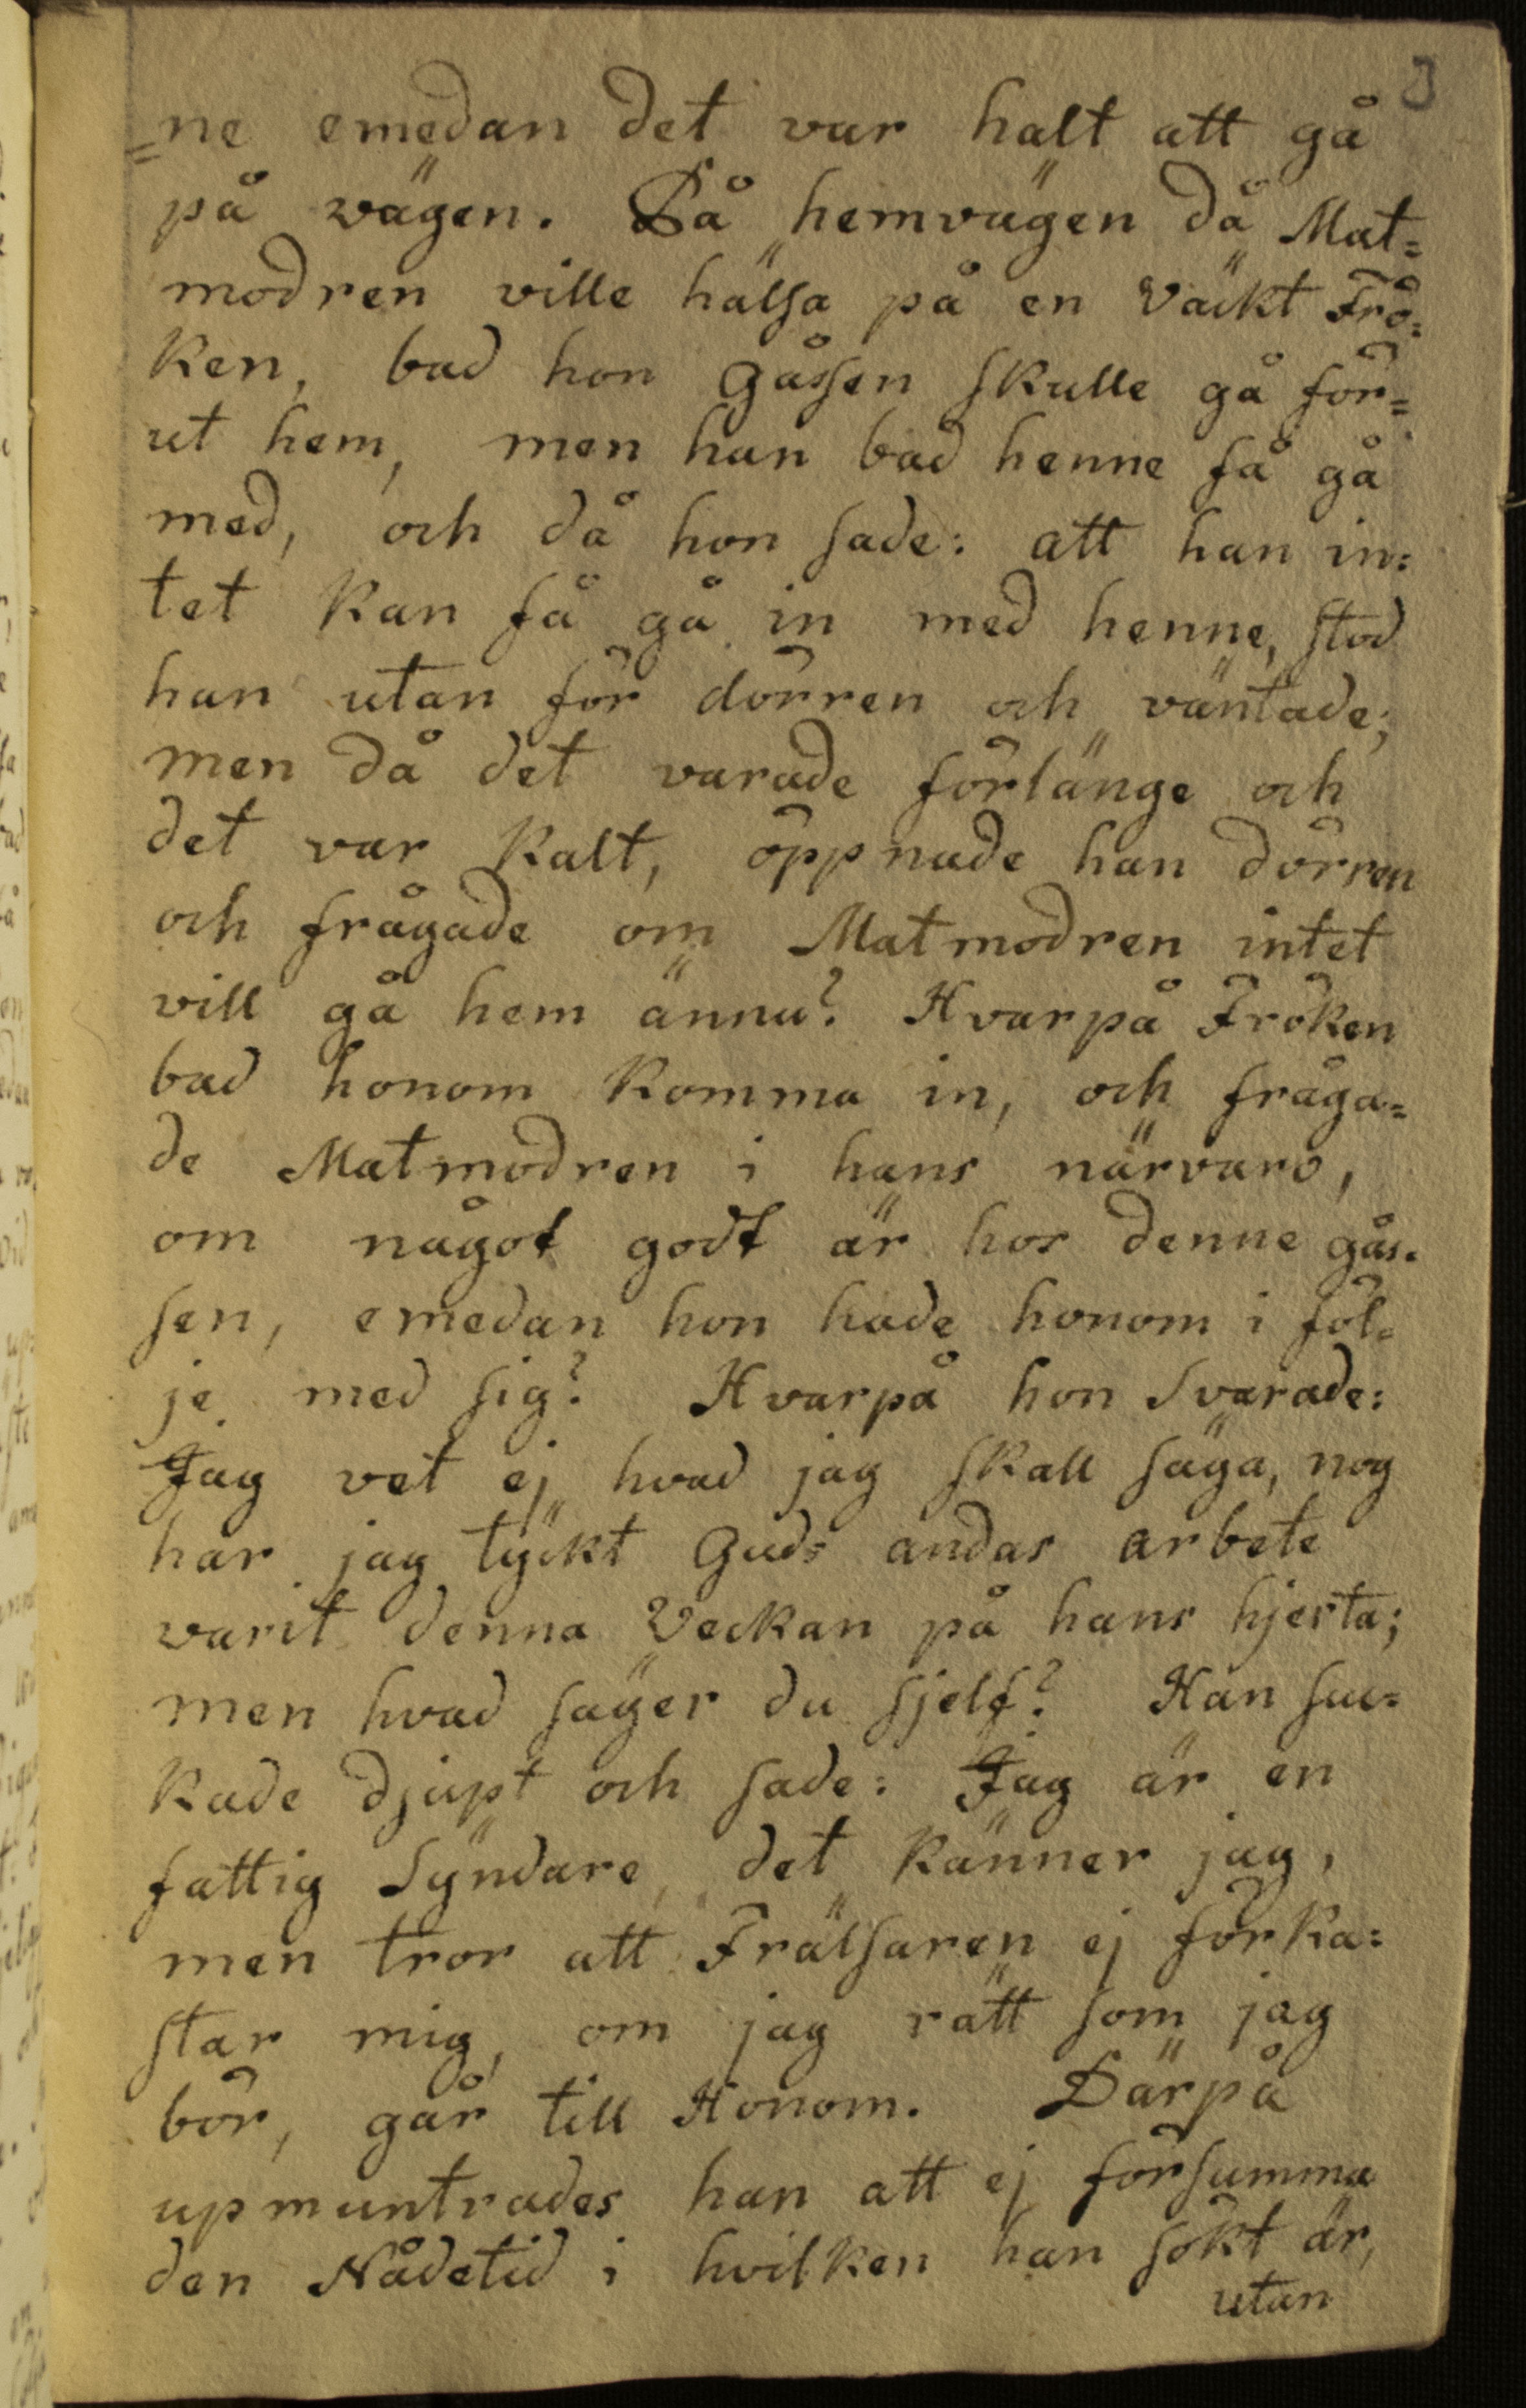 3
=ne emedan det var halt att gå
på vägen. På hemvägen då Mat=
modren ville hälsa på en väckt Frö=
ken, bad hon gåssen skulle gå för=
ut hem, men han bad henne få gå
med, och då hon sade: att han in=
tet kan få gå in med henne, stod
han utan för dörren och väntade;
men då det varade förlänge och
det var kalt, öppnade han dörren
och frågade om Matmodren intet
vill gå hem ännu? Hvarpå Fröken
bad honom komma in, och fråga=
de Matmodren i hans närvaro,
om något godt är hos denne gås=
sen, emedan hon hade honom i föl=
je med sig? Hvarpå hon svarade:
Jag vet ej hvad jag skall säga, nog
har jag tÿckt Guds andas arbete
varit denna Veckan på hans hjerta;
men hvad säger du sjelf? Han suc=
kade djupt och sade: Jag är en
fattig Sÿndare, det känner jag,
men tror att Frälsaren ej förka=
star mig, om jag rätt som jag
bör, går till Honom. Därpå
upmuntrades han att ej försumma
den Nådetid i hvilken han sökt är,
utan